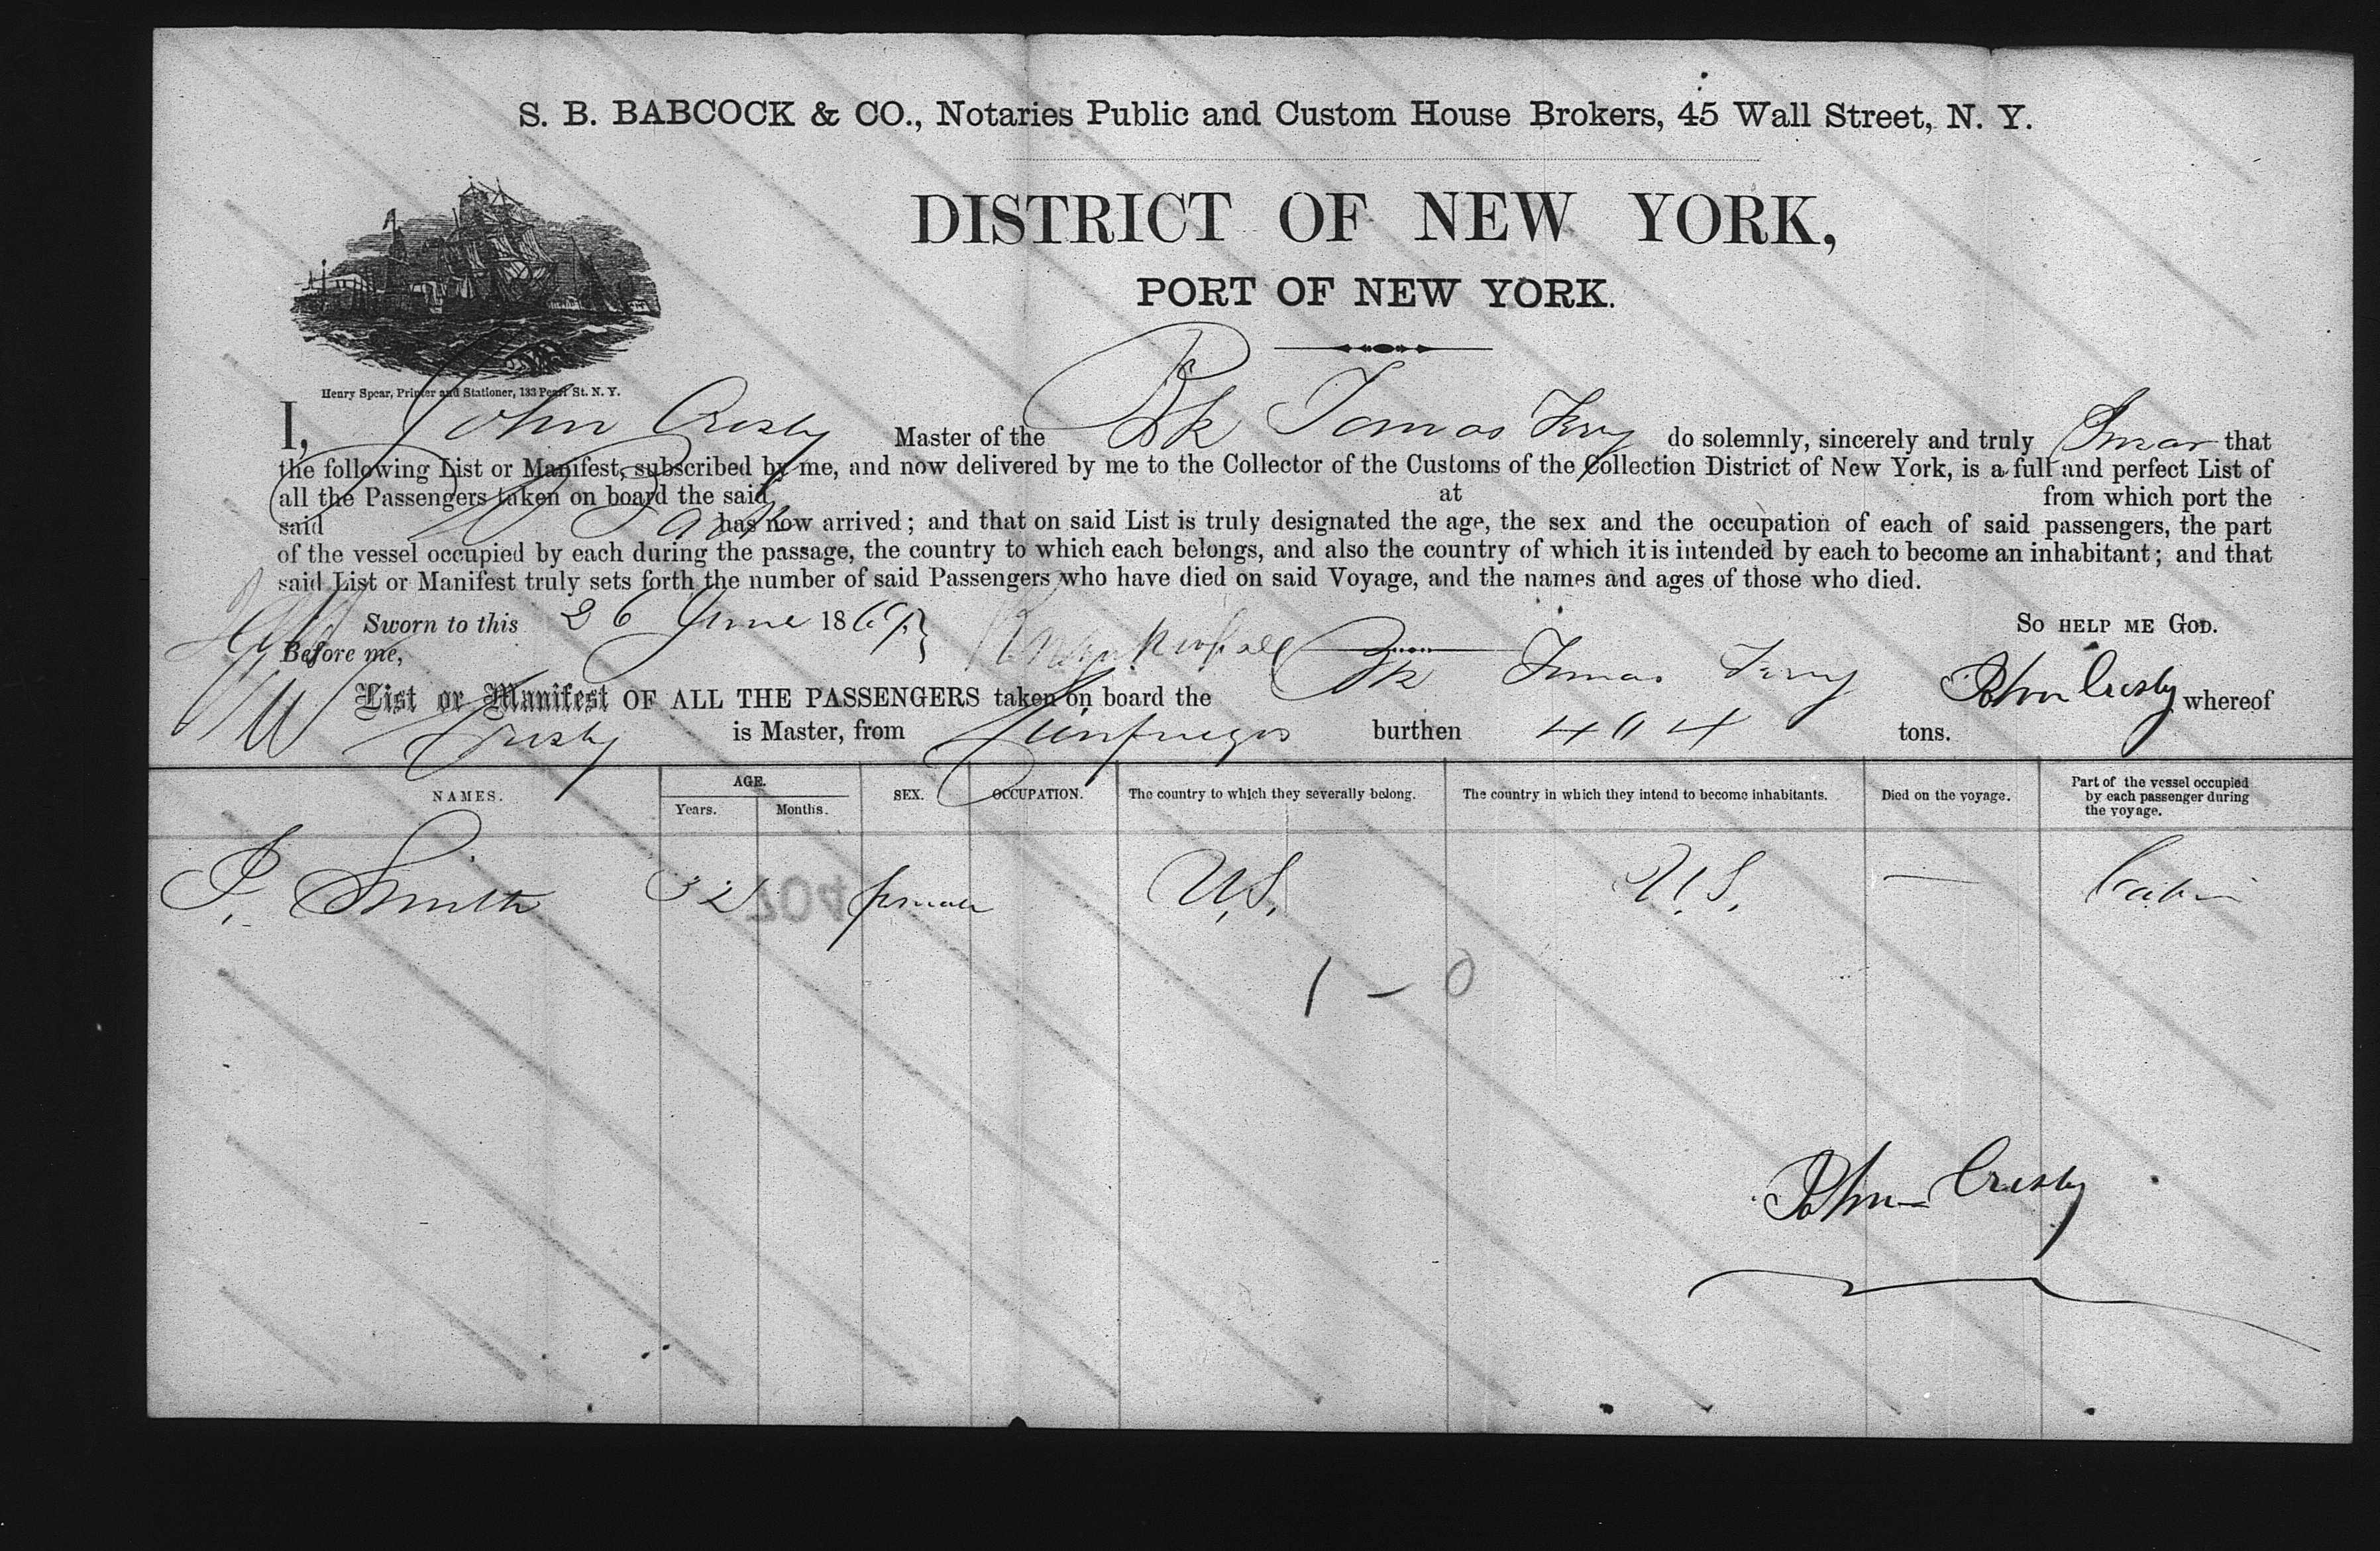 S. B. BABCOCK & CO., Notaries Public and Custom House Brokers, 45 Wall Street, N. Y.
DISTRICT OF NEW YORK,
PORT OF NEW YORK.
Henry Spear, Printer and Stationer, 133 Pearl St. N. Y.
I, John Crosby Master of the Bk Tomas Terry do solemnly, sincerely and truly Swear that
the following List or Manifest, subscribed by me, and now delivered by me to the Collector of the Customs of the Collection District of New York, is a full and perfect List of
all the Passengers taken on board the said at from which port the
said has now arrived; and that on said List is truly designated the age, the sex and the occupation of each of said passengers, the part
of the vessel occupied by each during the passage, the country to which each belongs, and also the country of which it is intended by each to become an inhabitant; and that
said List or Manifest truly sets forth the number of said Passengers who have died on said Voyage, and the names and ages of those who died.
Sworn to this 26 June 1869 So HELP ME GOD.
Before me,
John Crosby
List or Manifest OF ALL THE PASSENGERS taken on board the Bk Tomas Terry whereof
Crosby is Master, from Cienfuegos burthen 414 tons.
NAMES. AGE. SEX. OCCUPATION. The country to which they severally belong. The country in which they intend to become inhabitants. Died on the voyage. Part of the vessel occupied by each passenger during the voyage.
Years. Months.
P. Smith 32 female U.S. U.S. — Cabin
704
1 – 0
John Crosby